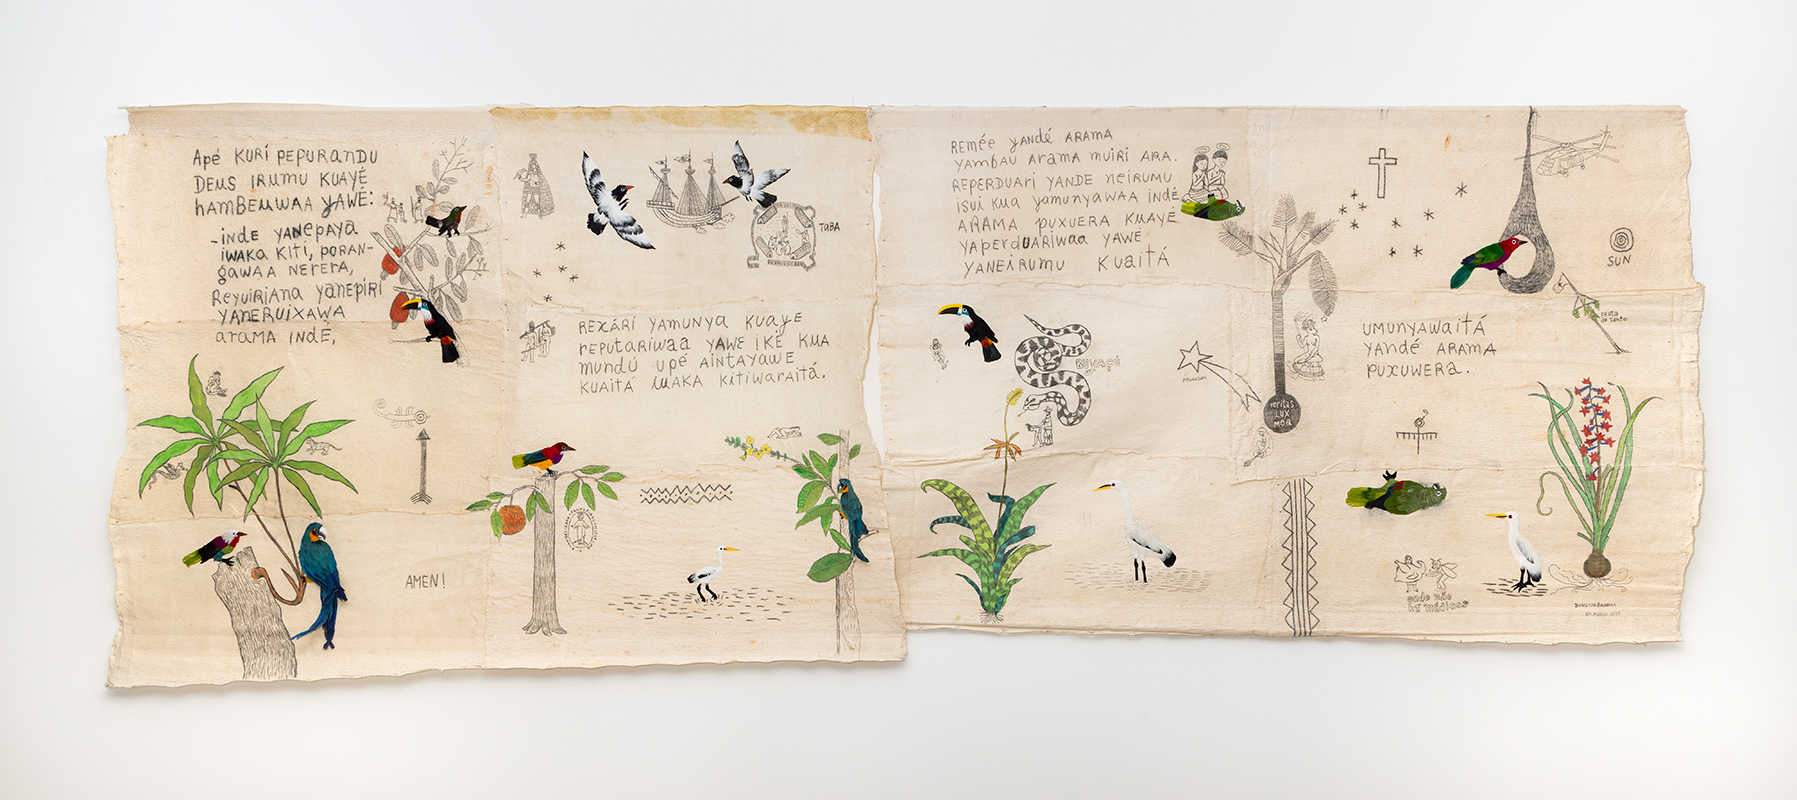 Apé KURI PEPURANDU
DEUS IRUMU KUAYÉ
hAMBEUWAA YAWÉ:
-INDE YANEPAYA
IWAKA KITI, PORAN-
GAWAA NERERA,
REYUIRIANA YANEPIRI
YANERUIXAWA
ARAMA INDÉ,
AMEN!
TABA
REXÁRI YAMUNYA KUAYE
REPUTARIWAA YAWE IKÉ KUA
MUNDÚ UPÉ AINTAYAWE
KUAITÁ IWAKA KITIWARAITÁ.
REMÉE YANDÉ ARAMA
YAMBAU ARAMA MUIRI ARA.
REPERDUARI YANDE NEIRUMU
ISUI KUA YAMUNYAWAA INDÉ
ARAMA PUXUERA KUAYÉ
YAPERDUARIWAA YAWÉ
YANEIRUMU KUAITÁ
BUYAÇÚ
VERITAS
LUX
MEA
SUN
FESTA
de Santo
UMUNYAWAITÁ
YANDÉ ARAMA
PUXUWERA.
onde não
há médicos